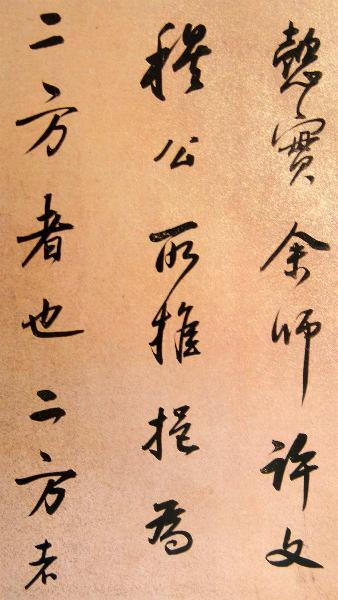 愨實余師許文
穆公所推挹為
二方者也二方者